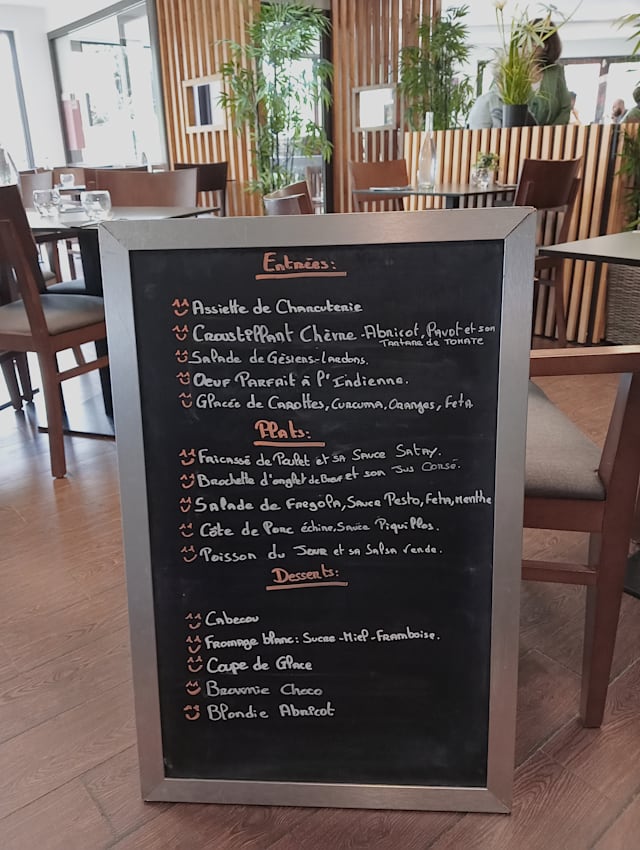 Entrées:
Assiette de Charcuterie
Croustillant Chèvre-Abricot, Pavot et son
Tartare de Tomate
Salade de Gésiers-Lardons.
Oeuf Parfait à l'Indienne.
Glacée de Carottes, Curcuma, Oranges, Feta.
Plats:
Fricassé de Poulet et sa Sauce Satay.
Brochette d'onglet de Bœuf et son Jus Corsé.
Salade de Fregola, Sauce Pesto, Feta, Menthe
Côte de Porc échine, Sauce Piquillos.
Poisson du Jour et sa Salsa Verde.
Desserts:
Cabecou
Fromage blanc: Sucre-Miel-Framboise.
Coupe de Glace
Brownie Choco
Blondie Abricot